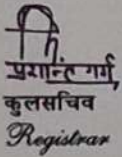 प्रशान्त गर्ग,
कुलसचिव
Registrar